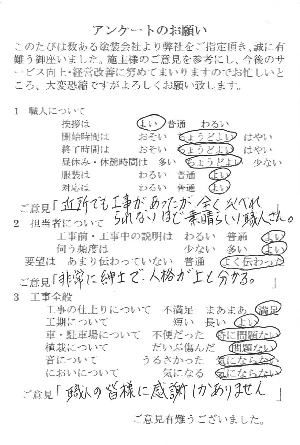 アンケートのお願い
このたびは数ある塗装会社より弊社をご指定頂き、誠に有
難う御座いました。施主様のご意見を参考にし、今後のサ
ービス向上・経営改善に努めてまいりますのでお忙しいと
ころ、大変恐縮ですがよろしくお願い致します。
1 職人について
挨拶は よい 普通 わるい
開始時間は おそい ちょうどよい はやい
終了時間は おそい ちょうどよい はやい
昼休み・休憩時間は 多い ちょうどよい 少ない
服装は わるい 普通 よい
対応は わるい 普通 よい
ご意見「近所でも工事があったが全く比べれ
られないほど素晴らしい職人さん。
2 担当者について
工事前・工事中の説明は わるい 普通 よい
伺う頻度は 少ない 多い よい
要望は あまり伝わっていない 普通 よく伝わった
ご意見「非常に紳士で、人格が上と分かる。」
3 工事全般
工事の仕上りについて 不満足 まあまあ 満足
工期について 短い 長い よい
車・駐車場について 不便だった 特に問題ない
植栽について だいぶ傷んだ 問題ない
音について うるさかった 気にならない
においについて 気になる 気にならない
ご意見「職人の皆様に感謝しかありません」
ご意見有難うございました。